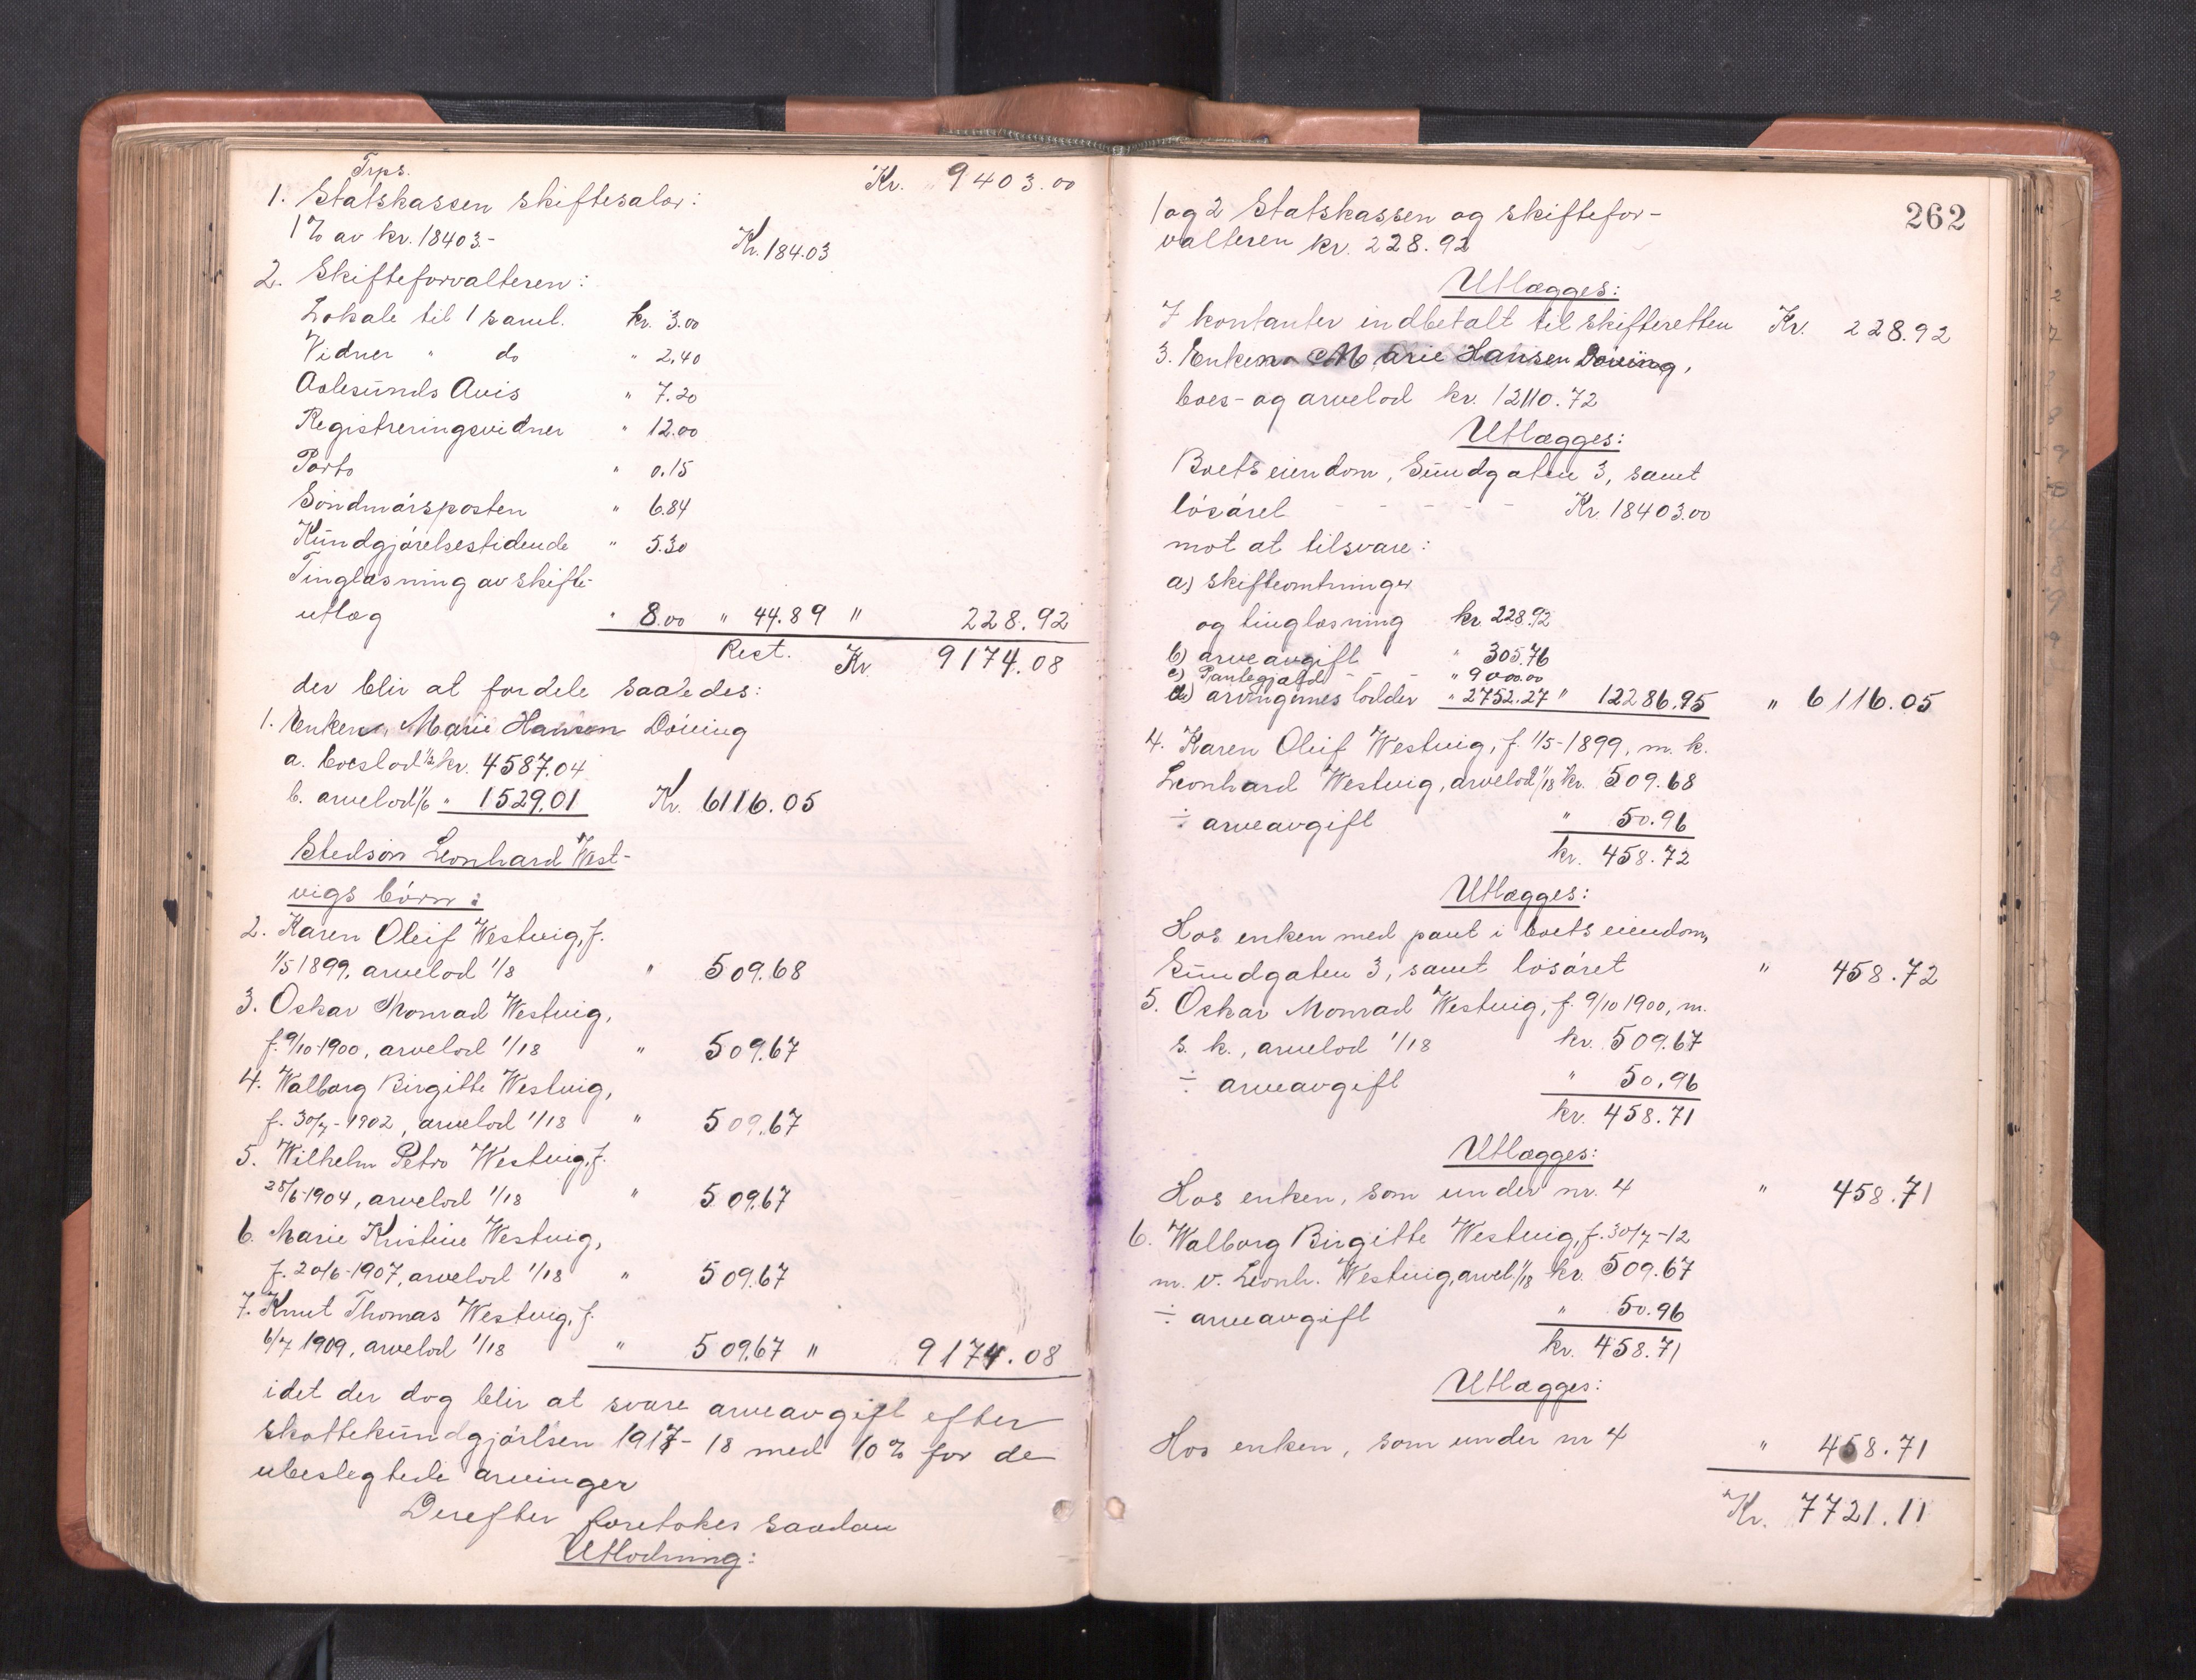 Trps. Kr. 9403.00
1. Statskassen skiftesalær:
1% av kr. 18403.- Kr. 184.03
2. Skifteforvalteren:
Lokale til 1 saml. kr. 3.00
Vidner " do " 2,40
Aalesunds Avis " 7.20
Registreringsvidner " 12.00
Porto " 0.15
Søndmørsposten " 6.84
Kundgjørelsestidende " 5.30
Tinglæsning av skifte-
utlæg " 8.00 " 44.89 " 228.92
Rest. Kr. 9174.08
der blir at fordele saaledes:
1. Enken, Marie Hansen Döving
a. boeslod ½ kr. 4587.04
b. arvelod 1/6 " 1529.01 Kr. 6116.05
Stedsøn Leonhard West-
vigs børn:
2. Karen Oleif Westvig, f.
1/5 1899, arvelod 1/8 " 509.68
3. Oskar Monrad Westvig,
f. 9/10-1900, arvelod 1/18 " 509.67
4. Walborg Birgitte Westvig,
f. 30/7-1902, arvelod 1/18 " 509.67
5. Wilhelm Petro Westvig, f.
28/6-1904, arvelod 1/18 " 509.67
6. Marie Kristine Westvig,
f. 20/6-1907, arvelod 1/18 " 509.67
7. Knut Thomas Westvig, f.
6/7 1909, arvelod 1/18 " 509.67 " 9174.08
idet der dog blir at svare arveavgift efter
skattekundgjørlsen 1917-18 med 10% for de
ubeslegtede arvinger
Derefter foretokes saadan
Utlodning:
262
1 og 2 Statskassen og skiftefor-
valteren kr. 228.92
Utlægges:
I kontanter indbetalt til skifteretten Kr. 228.92
3. Enken Marie Hansen Döving,
boes- og arvelod kr. 12110.72
Utlægges:
Boets eiendom, Sundgaten 3, samt
løsøret - - - - - Kr. 18403.00
mot at tilsvare:
a) skifteomkninger
og tinglæsning kr. 228.92
b) arveavgift " 305.76
c) Pantegjæld - - " 9000.00
d) arvingernes lodder " 2752.27 " 12286.95 " 6116.05
4. Karen Oleif Westvig, f. 1/5-1899, m. k.
Leonhard Westvig, arvelod 1/18 kr. 509.68
÷ arveavgift " 50.96
kr. 458.72
Utlægges:
Hos enken med pant i boets eiendom,
Sundgaten 3, samt løsøret " 458.72
5. Oskar Monrad Westvig, f. 9/10 1900, m.
s. k., arvelod 1/18 kr. 509.67
÷ arveavgift " 50.96
kr. 458.71
Utlægges:
Hos enken, som under nr. 4 " 458.71
6. Walborg Birgitte Westvig, f. 30/7-12
m. v. Leonh. Westvig, arvel. 1/18 kr. 509.67
÷ arveavgift " 50.96
kr. 458.71
Utlægges:
Hos enken, som under nr 4 " 458.71
Kr. 7721.11